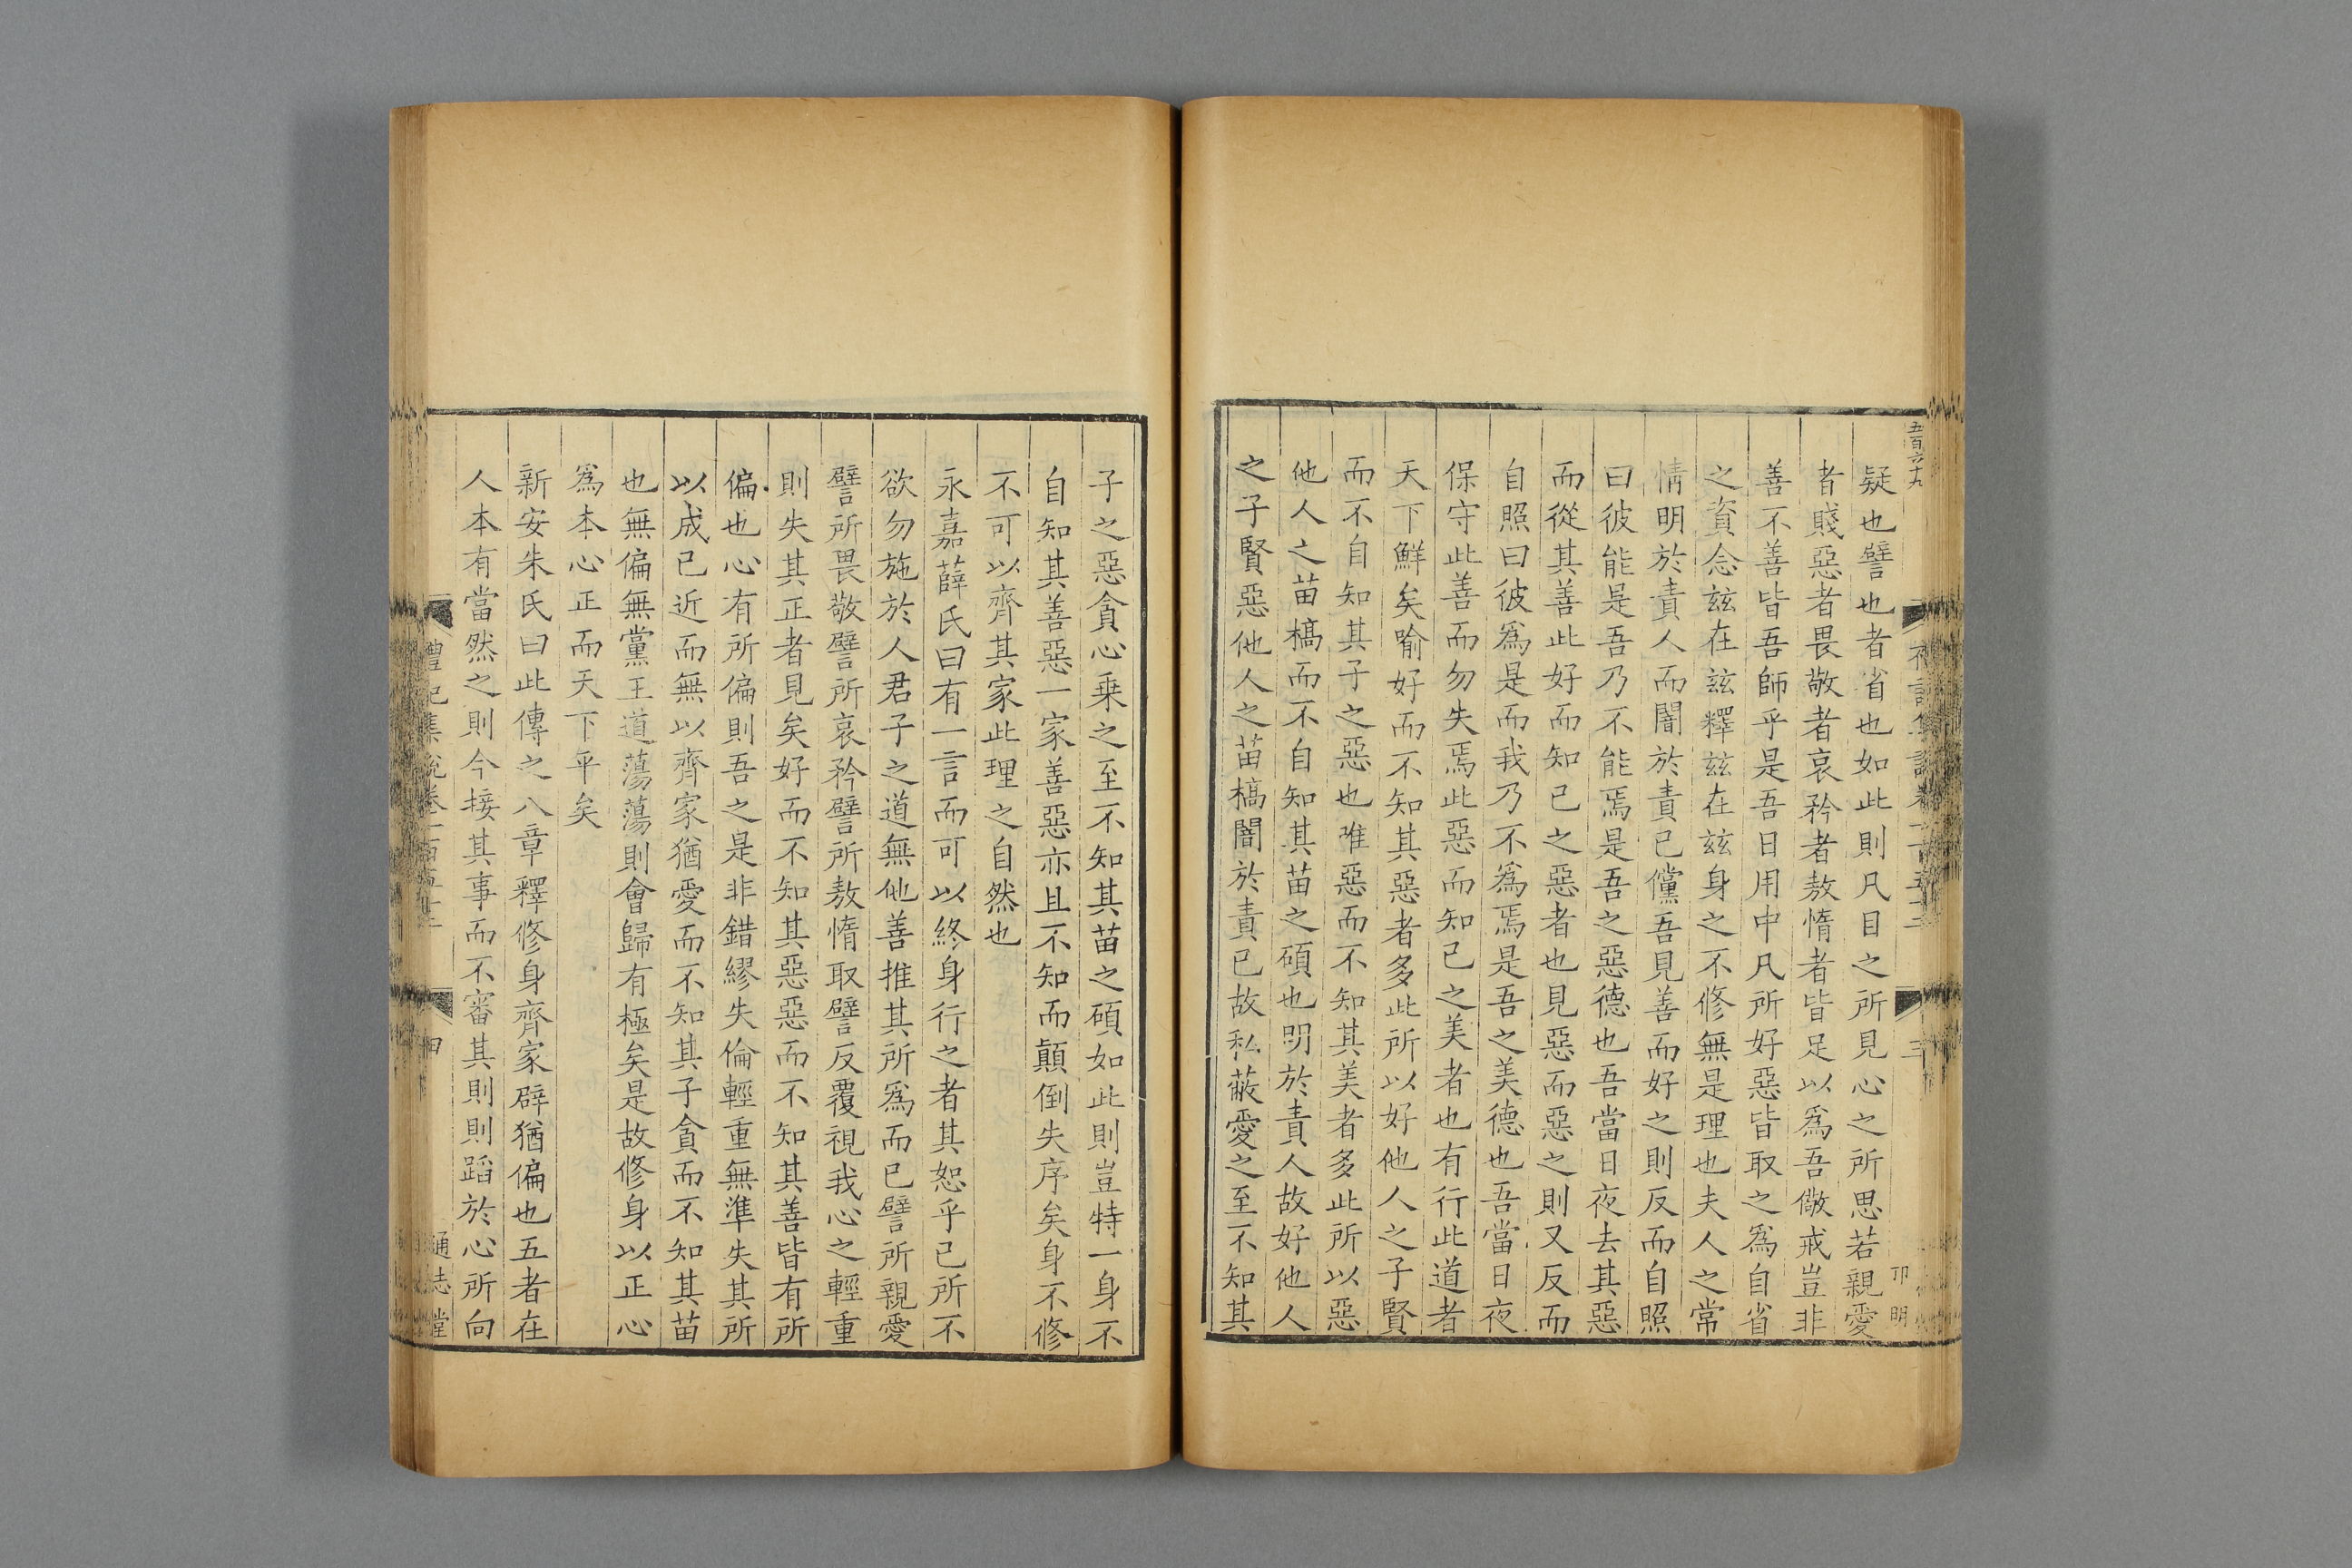 五百六十九
疑也譬也者省也如此則凡目之所見心之所思若親愛
者賤惡者畏敬者哀矜者敖惰者皆足以爲吾儆戒豈非
善不善皆吾師乎是吾日用中凡所好惡皆取之爲自省
之資念兹在兹釋兹在兹身之不修無是理也夫人之常
情明於責人而闇於責已儻吾見善而好之則反而自照
曰彼能是吾乃不能焉是吾之惡德也吾當日夜去其惡
而從其善此好而知已之惡者也見惡而惡之則又反而
自照曰彼爲是而我乃不爲焉是吾之美德也吾當日夜
保守此善而勿失焉此惡而知已之美者也有行此道者
天下鮮矣喻好而不知其惡者多此所以好他人之子賢
而不自知其子之惡也唯惡而不知其美者多此所以惡
他人之苗槁而不自知其苗之碩也明於責人故好他人
之子賢惡他人之苗槁闇於責已故私蔽愛之至不知其
子之惡貪心乗之至不知其苗之碩如此則豈特一身不
自知其善惡一家善惡亦且不知而顛倒失序矣身不修
不可以齊其家此理之自然也
永嘉薛氏曰有一言而可以終身行之者其恕乎已所不
欲勿施於人君子之道無他善推其所爲而已譬所親愛
譬所畏敬譬所哀矜譬所敖惰取譬反覆視我心之輕重
則失其正者見矣好而不知其惡惡而不知其善皆有所
偏也心有所偏則吾之是非錯繆失倫輕重無準失其所
以成已近而無以齊家猶愛而不知其子貪而不知其苗
也無偏無黨王道蕩蕩則會歸有極矣是故修身以正心
爲本心正而天下平矣
新安朱氏曰此傳之八章釋修身齊家辟猶偏也五者在
人本有當然之則今接其事而不審其則則蹈於心所向
禮記集說卷一百五十 四 通志堂